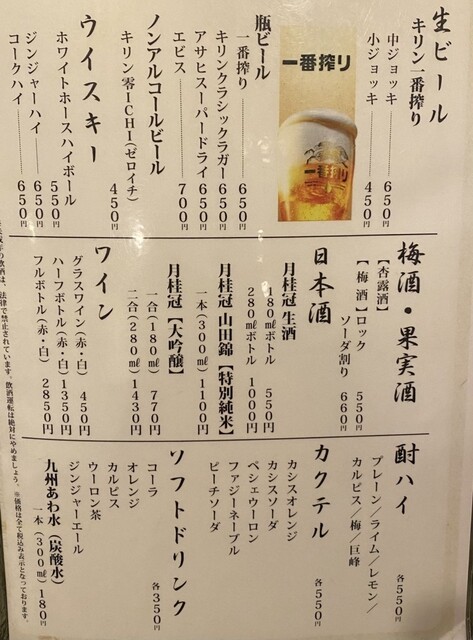 生ビール
キリン一番搾り
中ジョッキ 650円
小ジョッキ 450円
一番搾り
一番搾り
瓶ビール
一番搾り 650円
キリンクラシックラガー 650円
アサヒスーパードライ 650円
エビス 700円
ノンアルコールビール
キリン零ICHI(ゼロイチ) 450円
ウイスキー
ホワイトホースハイボール 550円
ジンジャーハイ 650円
コークハイ 650円
梅酒・果実酒
【杏露酒】
【梅酒】ロック 550円
ソーダ割り 660円
日本酒
月桂冠 生酒
180㎖ボトル 550円
280㎖ボトル 1000円
月桂冠 山田錦【特別純米】
一本(300㎖) 1100円
月桂冠【大吟醸】
一合(180㎖) 770円
二合(280㎖) 1430円
ワイン
グラスワイン(赤・白) 450円
ハーフボトル(赤・白) 1350円
フルボトル(赤・白) 2850円
酎ハイ
プレーン/ライム/レモン/
カルピス/梅/巨峰
各550円
カクテル
カシスオレンジ
カシスソーダ
ペシェウーロン
ファジーネーブル
ピーチソーダ
各550円
ソフトドリンク
コーラ
オレンジ
カルピス
ウーロン茶
ジンジャーエール
各350円
九州あわ水(炭酸水)
一本(300㎖) 180円
飲酒は、法律で禁止されています。飲酒運転は絶対にやめましょう。※価格は全て税込み表示となっております。